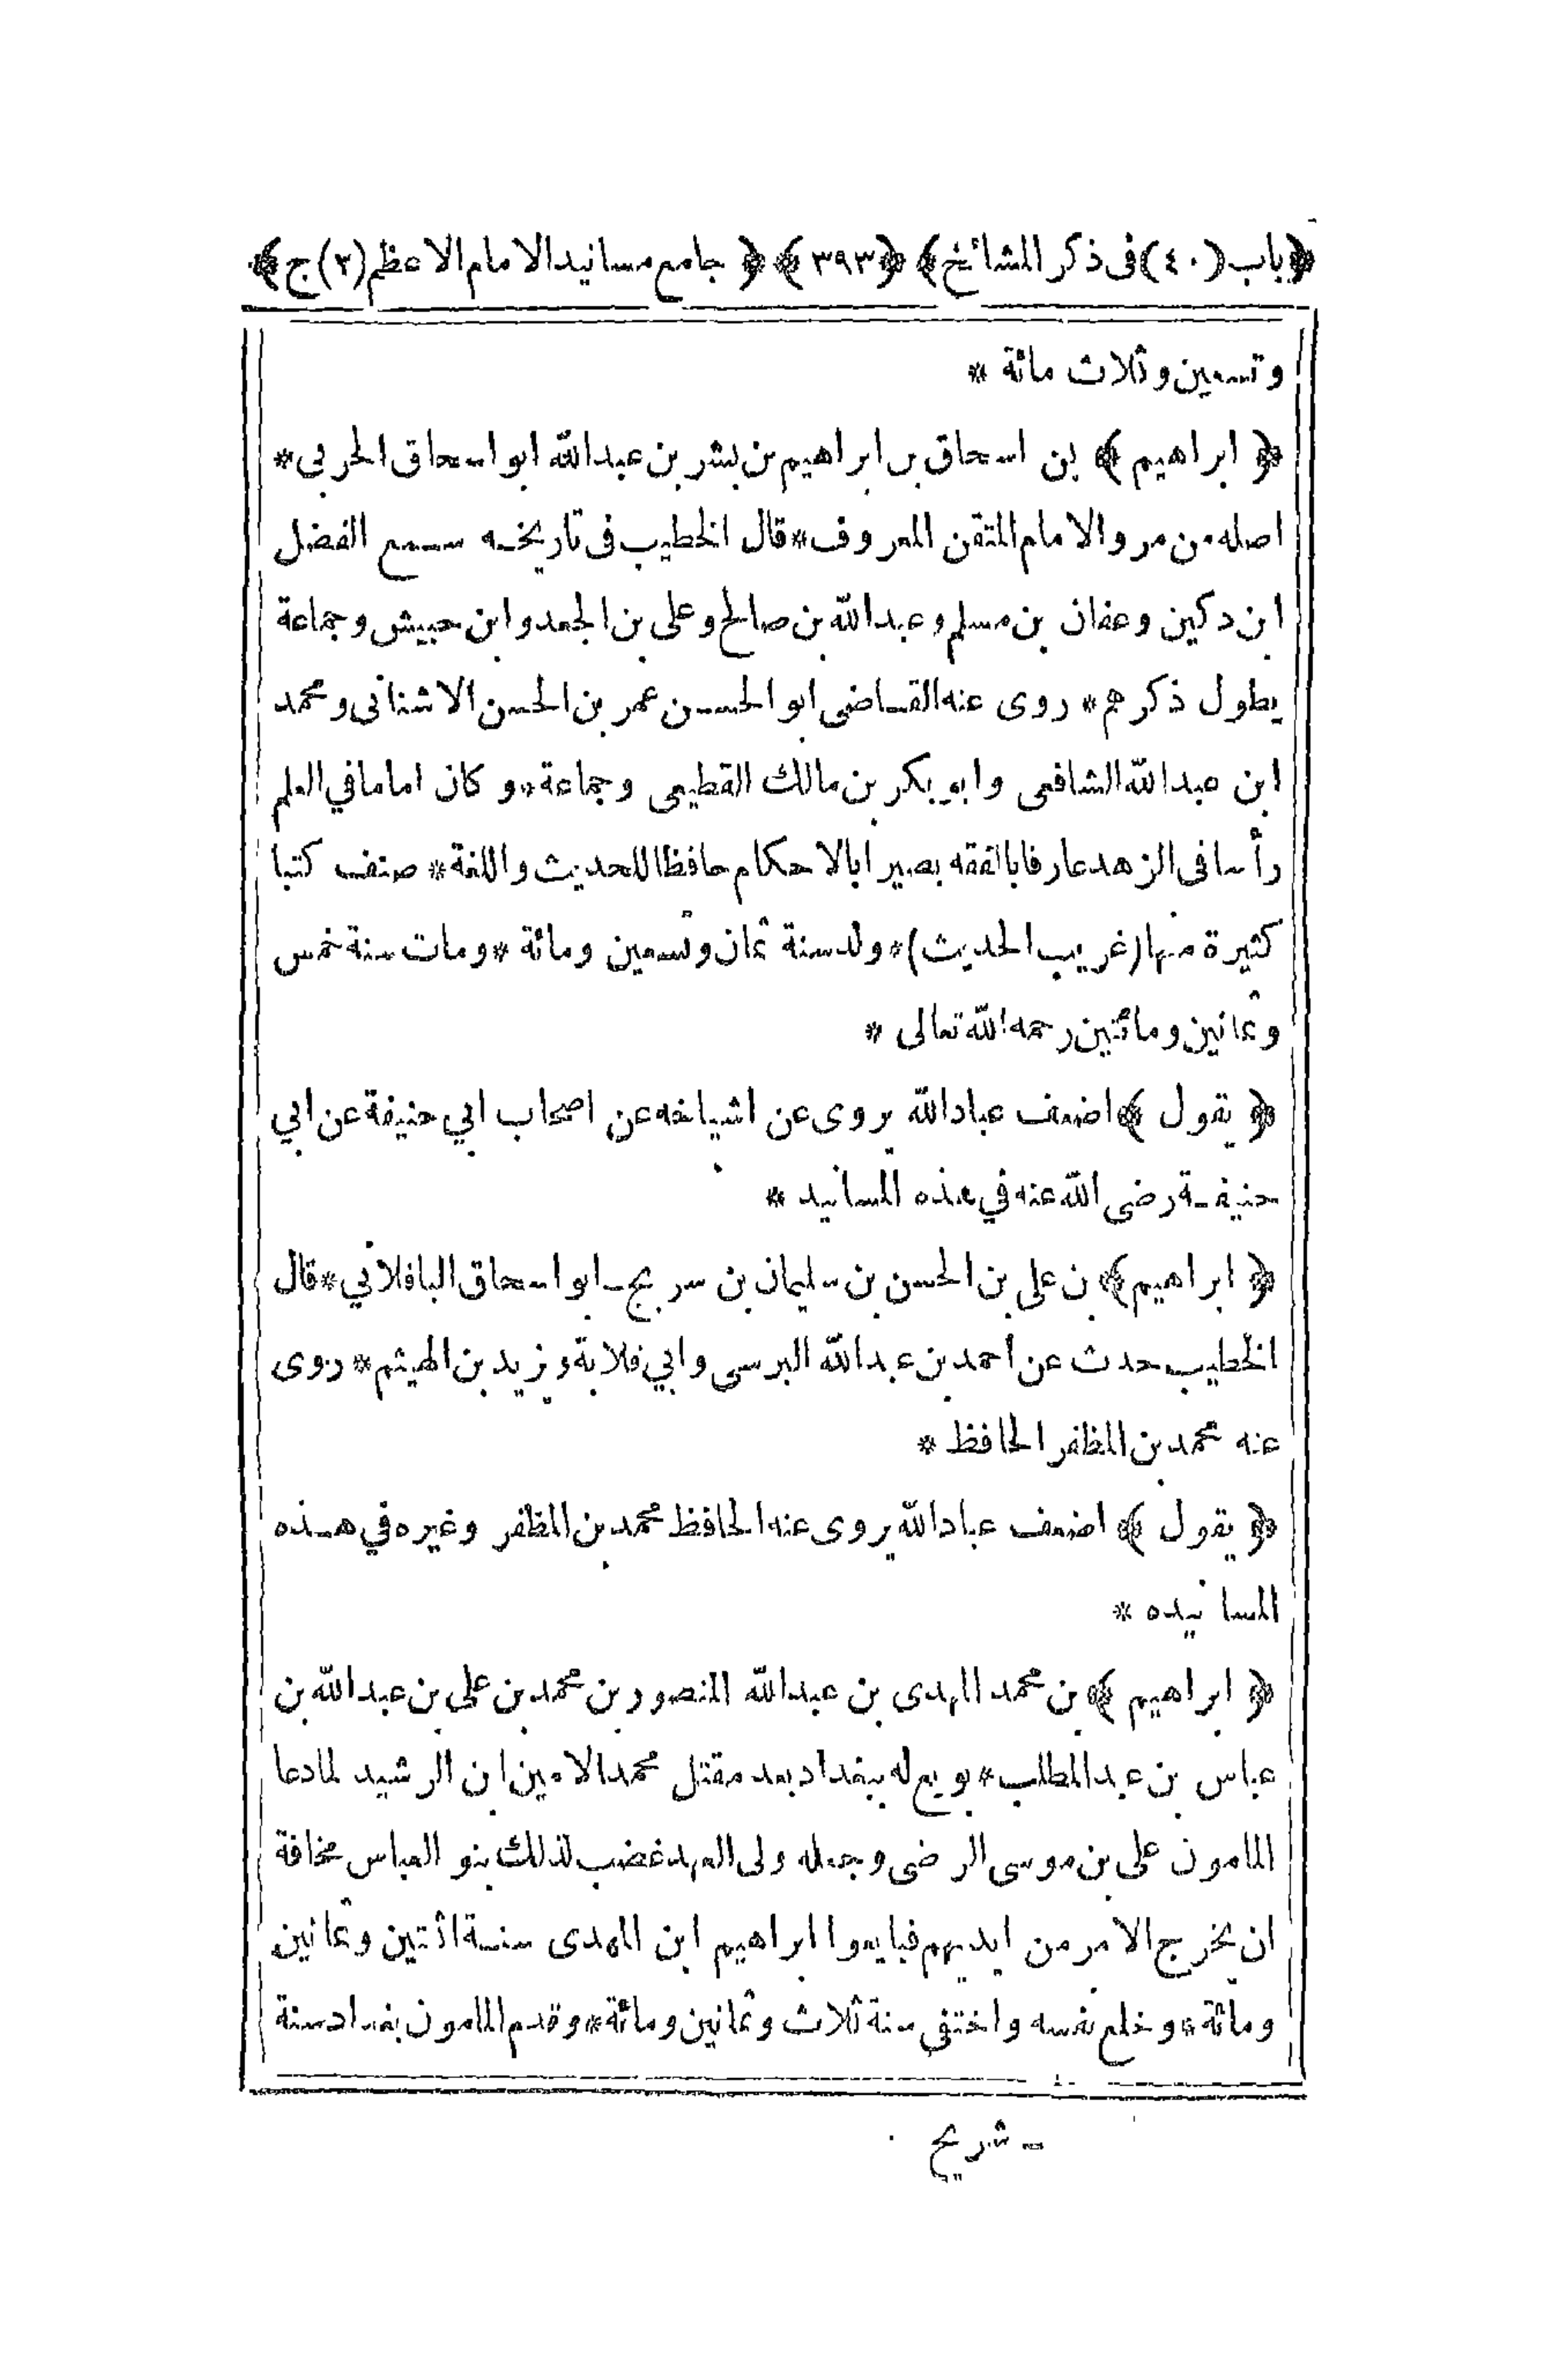 ﴿باب (٤٠) فى ذكر المشائخ﴾ ﴿٣٩٣﴾ ﴿ جامع مسانيد الامام الاعظم (٢) ج﴾
وتسعين وثلاث مائة *
﴿ ابراهيم ﴾ بن اسحاق بن ابراهيم بن بشر بن عبدالله ابو اسحاق الحربى *
اصله من مرو الامام المتقن المعروف * قال الخطيب فى تاريخه سمع الفضل
ابن دكين وعفان بن مسلم وعبدالله بن صالح وعلى بن الجعد وابن حبيش وجماعة
يطول ذكرهم * روى عنه القاضى ابو الحسين عمر بن الحسن الاشنانى ومحمد
ابن عبدالله الشافعى وابو بكر بن مالك القطيعى وجماعة * وكان اماما في العلم
رأسا فى الزهد عارفا بالفقه بصيرا بالاحكام حافظا للحديث واللغة * صنف كتبا
كثيرة منها (غريب الحديث) * ولد سنة ثمان وتسعين ومائة * ومات سنة خمس
وثمانين ومائتين رحمه الله تعالى *
﴿ يقول ﴾ اضعف عباد الله يروى عن اشياخه عن اصحاب ابي حنيفة عن ابي
حنيفة رضى الله عنه في هذه المسانيد *
﴿ ابراهيم ﴾ بن على بن الحسن بن سليمان بن سريج ـ ابو اسحاق الباقلاني * قال
الخطيب حدث عن احمد بن عبدالله البرسى وابي قلابة ويزيد بن الهيثم * روى
عنه محمد بن المظفر الحافظ *
﴿ يقول ﴾ اضعف عباد الله يروى عنه الحافظ محمد بن المظفر وغيره في هذه
المسانيده *
﴿ ابراهيم ﴾ بن محمد المهدى بن عبدالله المنصور بن محمد بن على بن عبدالله بن
عباس بن عبد المطلب * بويع له ببغداد بعد مقتل محمد الامين ابن الرشيد لما دعا
المامون على بن موسى الرضى وجعله ولى العهد غضب لذلك بنو العباس مخافة
ان يخرج الامر من ايديهم فبايعوا ابراهيم ابن المهدى سنة اثنتين وثمانين
ومائة * وخلع نفسه واختفى سنة ثلاث وثمانين ومائة * وقدم المامون بغداد سنة
ـ شريح